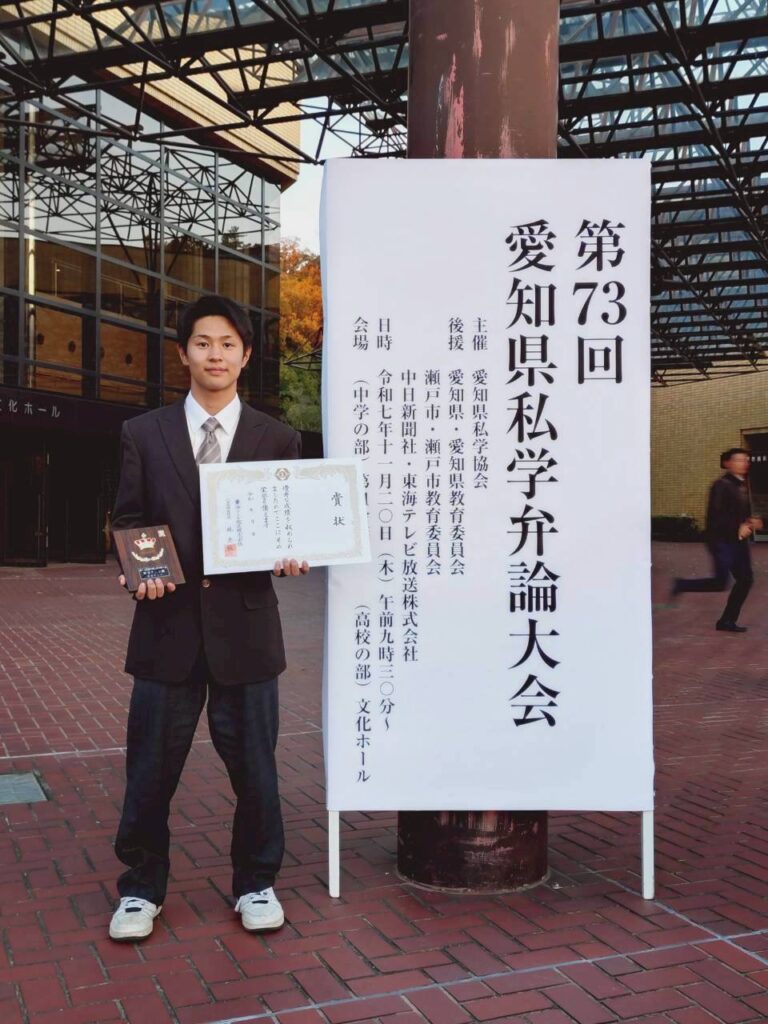 第73回
愛知県私学弁論大会
主催 愛知県私学協会
後援 愛知県・愛知県教育委員会
瀬戸市・瀬戸市教育委員会
中日新聞社・東海テレビ放送株式会社
日時 令和七年十一月二〇日（木）午前九時三〇分～
会場 （中学の部）（高校の部）文化ホール
賞状
文化ホール